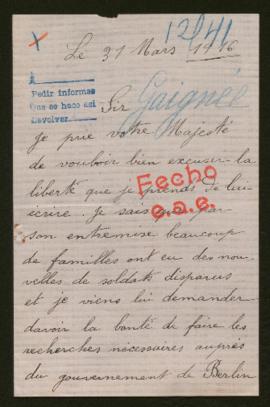 x
12/41
Le 31 Mars 1916
Pedir informes
Que se haco asi
Devolver
Sir
Gaignée
Je prie votre Majesté
de vouloir bien excuser la
liberté que je prends de lui
écrire. Je sais que par
Fecho
e.a.e.
son entremise beaucoup
de familles ont eu des nou-
velles de soldats disparus
et je viens lui demander
d'avoir la bonté de faire les
recherches nécessaires auprès
du gouvernement de Berlin